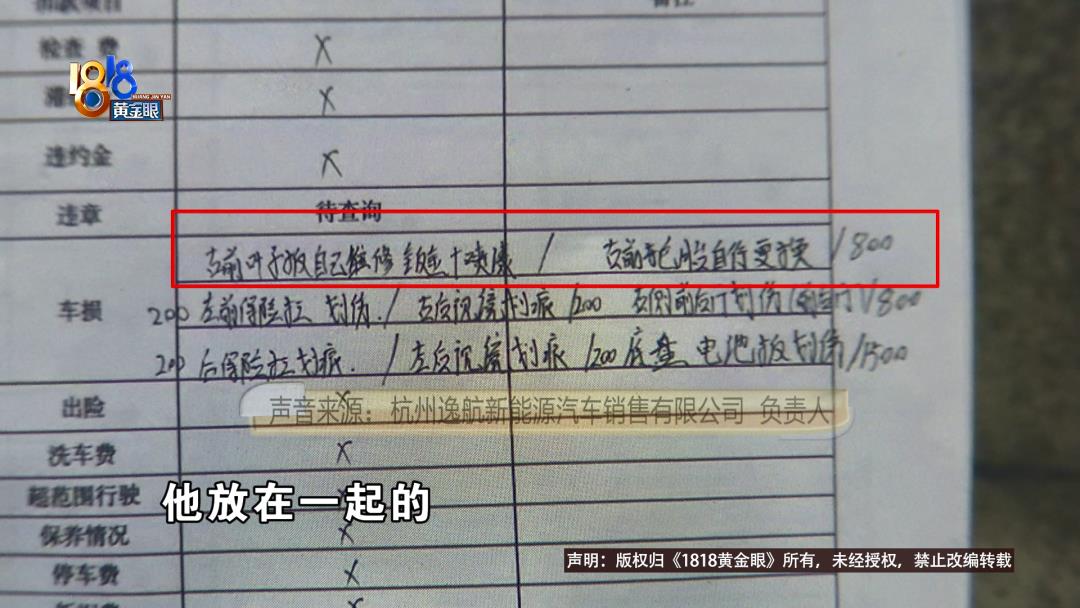 扣款项目
备注
检查费 X
1818
HUANG JIN YAN
黄金眼
X
违约金 X
违章 待查询
右前叶子板自己维修 钣金+喷漆 / 右前轮胎自行更换 /800
车损
200 左前保险杠 划伤 / 右后视镜划痕 /200 右侧前后门划伤 /800
200 后保险杠划痕 / 左后视镜划痕 /200 底盘 电池板划伤/1500
出险 X
声音来源：杭州逸航新能源汽车销售有限公司 负责人
洗车费 X
超范围行驶
他放在一起的
保养情况 X
声明：版权归《1818黄金眼》所有，未经授权，禁止改编转载
停车费 X